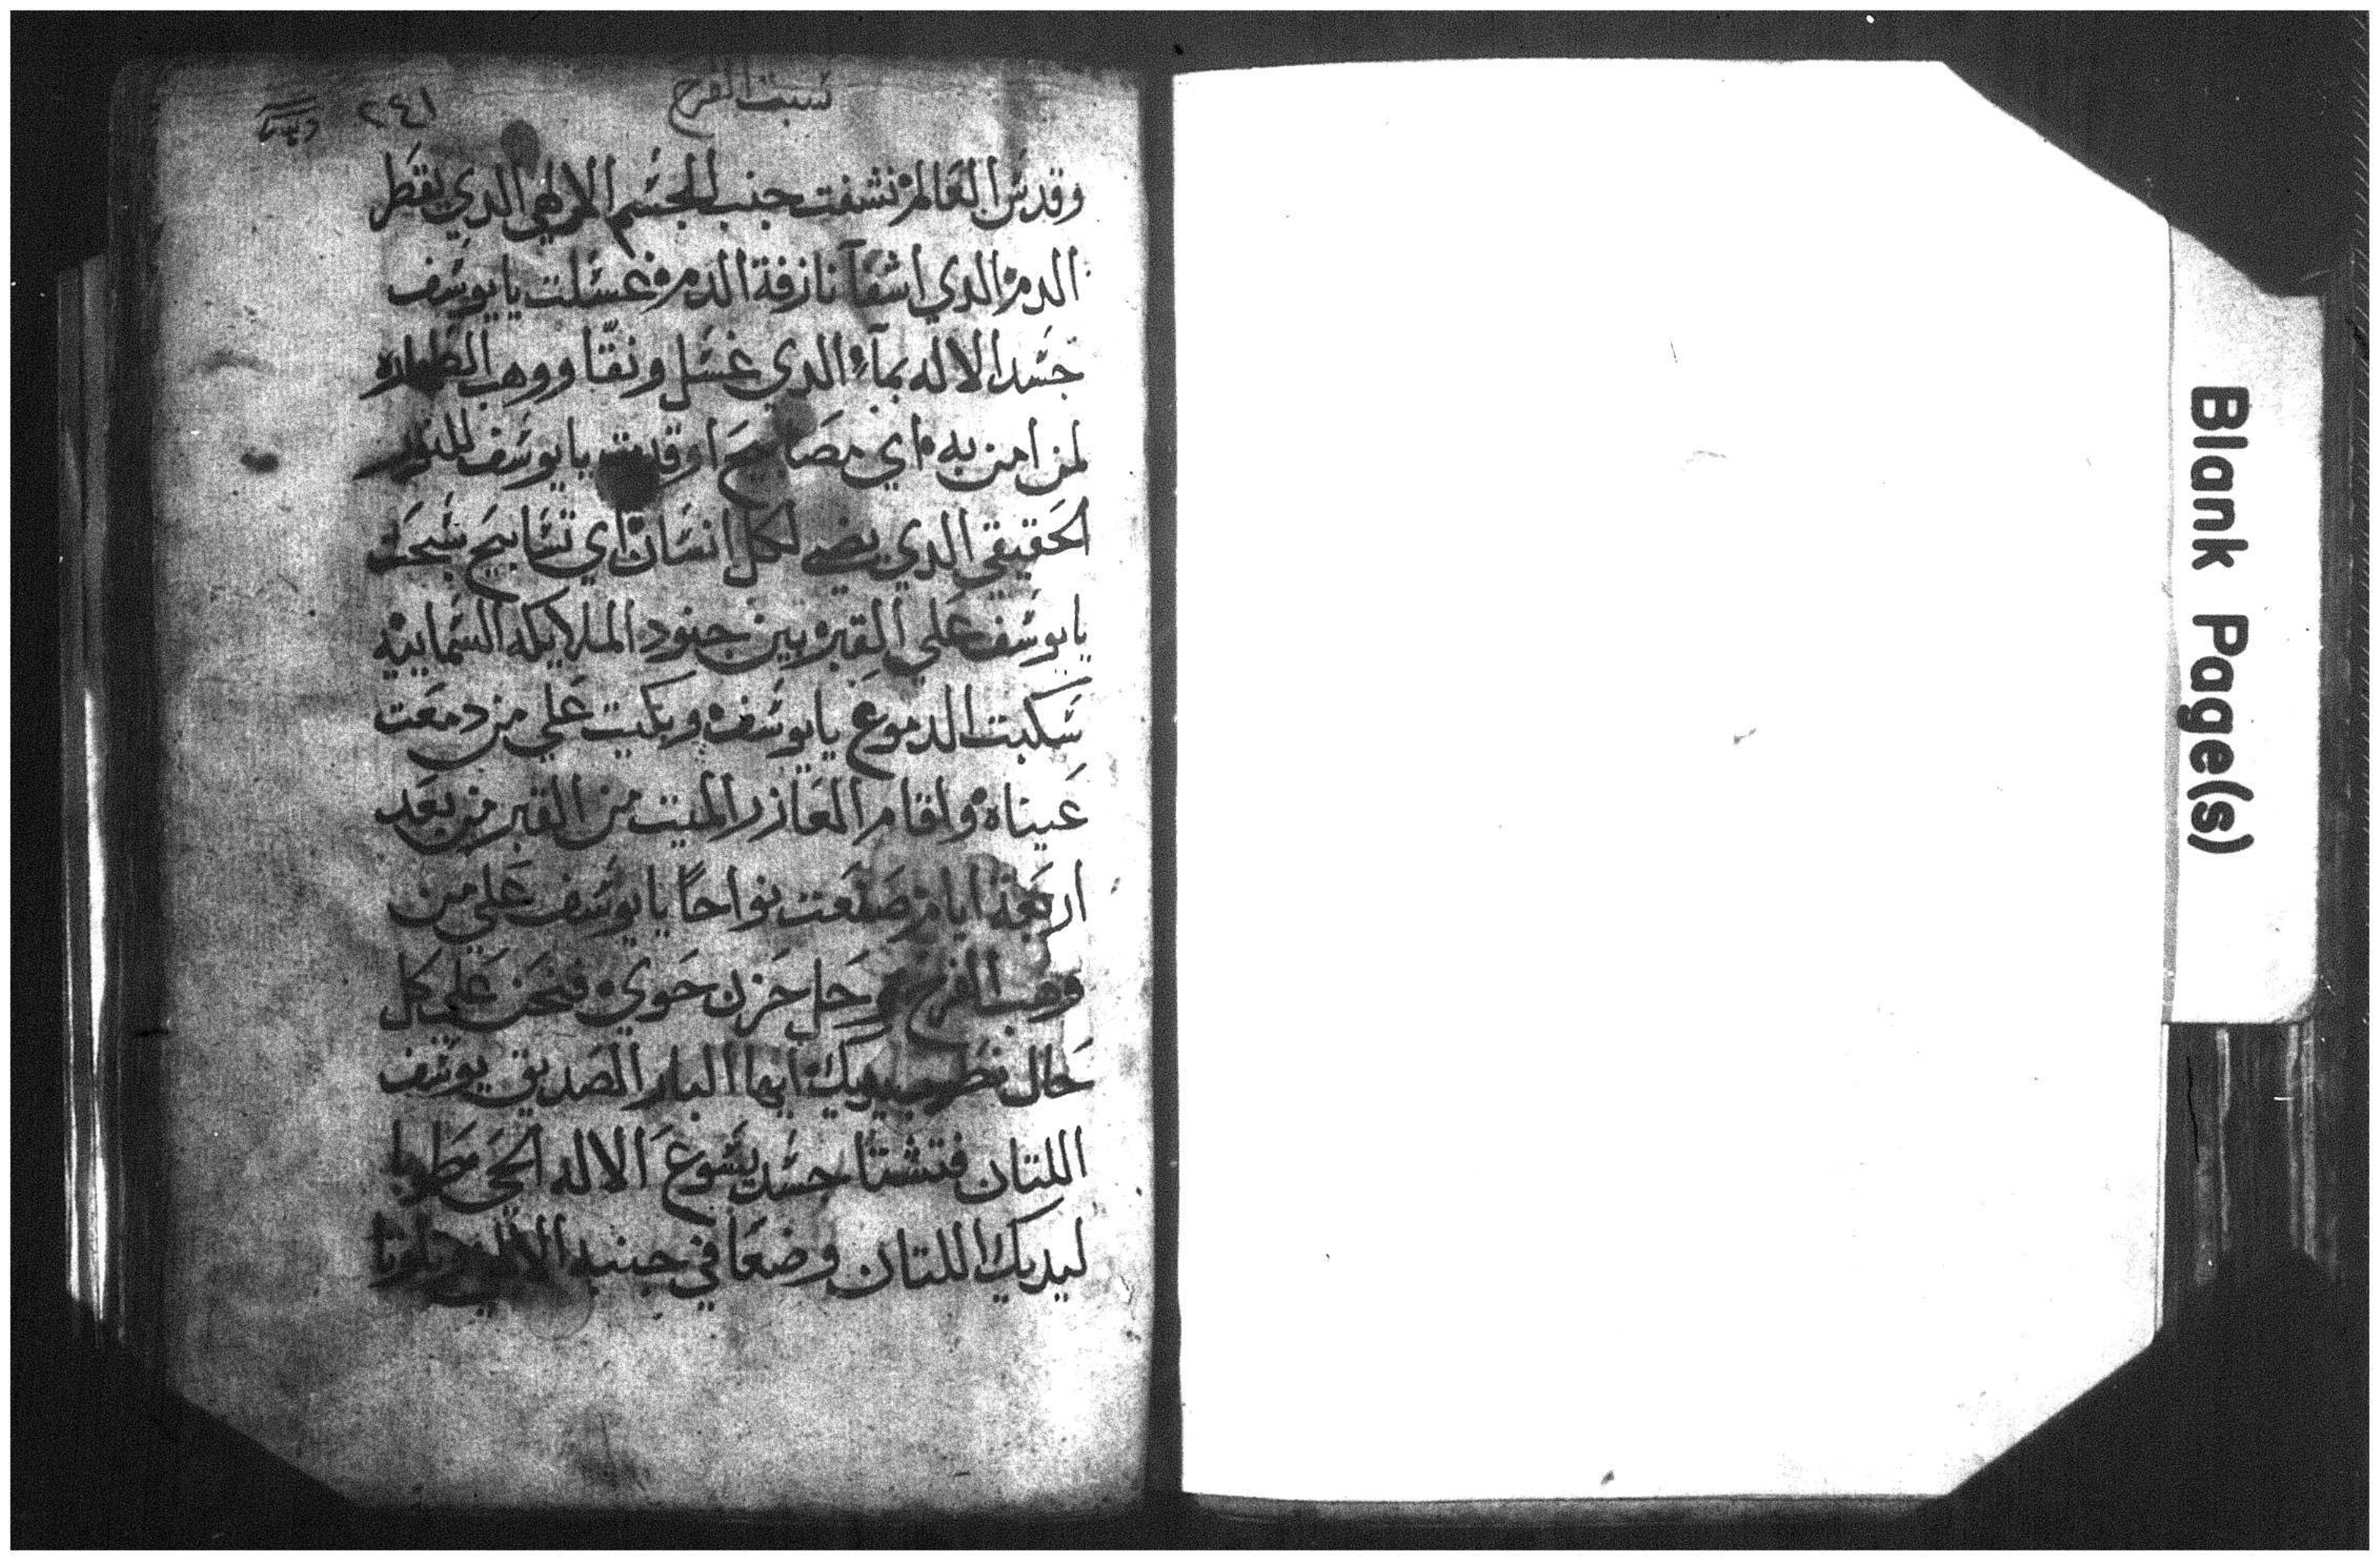 سبت الفرح
٢٤١
وقدس العالم نشفت جنب الجسم الالهي الدي يقطر
الدم الدي اشفا نازفة الدم غسلت يا يوسف
جسد الاله بمآء الدي غسل ونقّا ووهب الطهاره
لمن امن به اي مصابيح اوقدت يا يوسف للنور
الحقيقي الدي يضي لكل انسان اي تسابيح سبحت
يا يوسف علي القبر بين جنود الملايكه السماييه
سكبت الدموع يا يوسف وبكيت علي من دمعت
عيناه واقام العازر الميت من القبر من بعد
اربعة ايام صنعت نواحاً يا يوسف علي من
وهب الفرح حل حزن حوي فنحن علي كل
حال يديك ايها البار الصديق يوسف
اللتان فتشتا جسد يسوع الاله الحي طوبا
ليديك اللتان وضعا في جنبه الالهي
Blank Page(s)